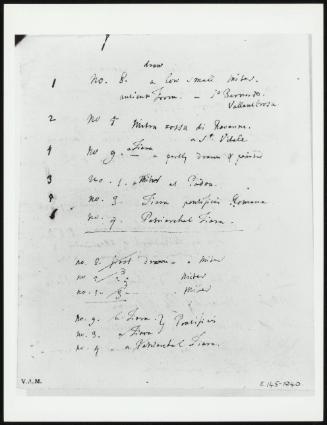 draw
1 No. 8. a low small miter.
ancient form. - St Bernardo.
Vallombrosa
2 No 5 Mitra rossa di Ravenna.
a St. Vitale
4 No 9. a Tiara - partly drawn & painted
3 No. 1. a Miter at Padua.
8 No. 3. Tiara pontificia Romana
6 No. 4. Patriarchal Tiara.
no. 8. first drawn - a miter
no 2. Miter
no. 1. 3 Miter
No. 9. a Tiara } Pontificis
no. 3. a Tiara
no. 4 - a Patriarchal Tiara.
V.A.M.
E.145-1940